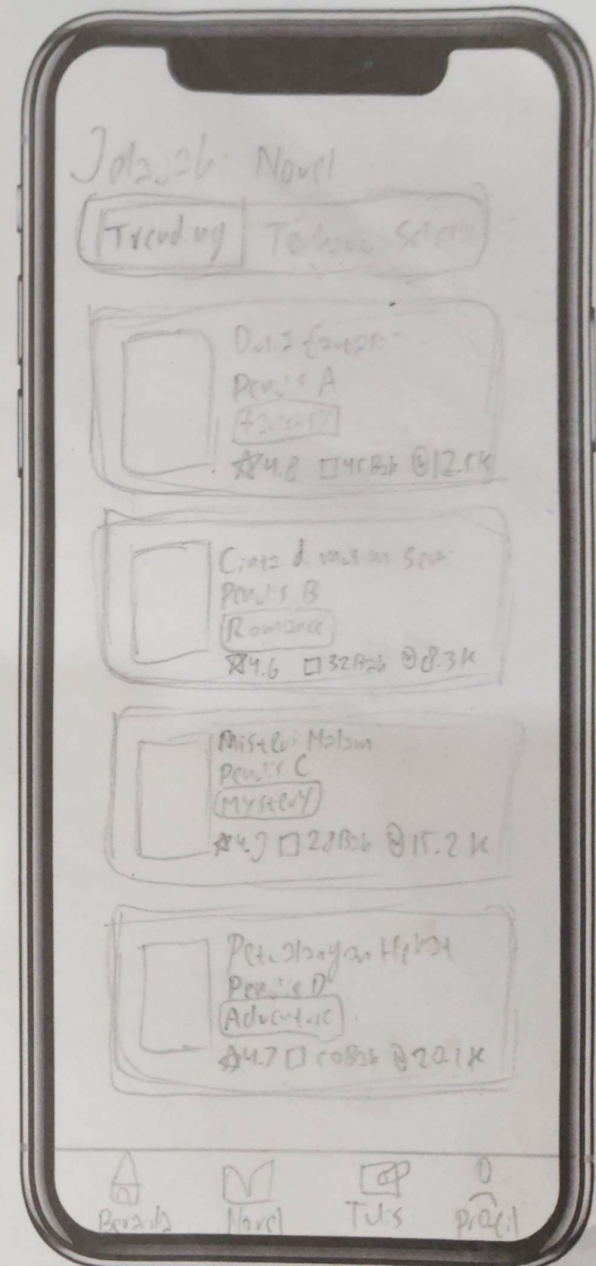 Jelajah Novel
Trending Terbaru Selesai
Dunia fantasi
Penulis A
fantasy
4.8 45 Bab 12.5K
Cinta di musim Semi
Penulis B
Romance
4.6 32 Bab 8.3K
Misteri Malam
Penulis C
Mystery
4.9 28 Bab 15.2K
Petualangan Hebat
Penulis D
Adventure
4.7 60 Bab 20.1K
Beranda Novel Tulis Profil